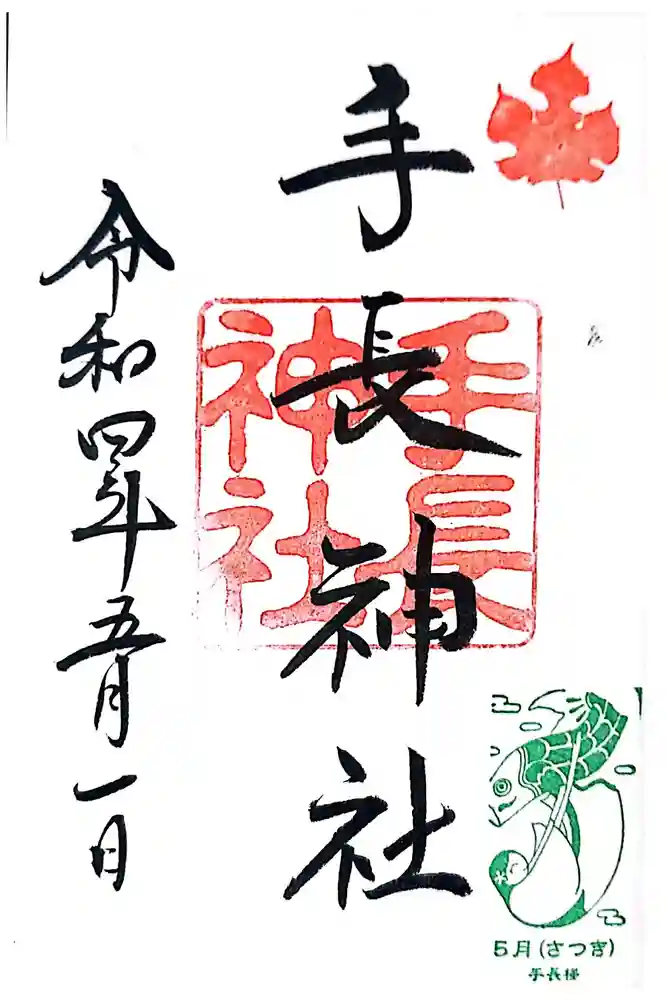 手長神社
手長
神社
5月(さつき)
手長様
令和四年五月一日